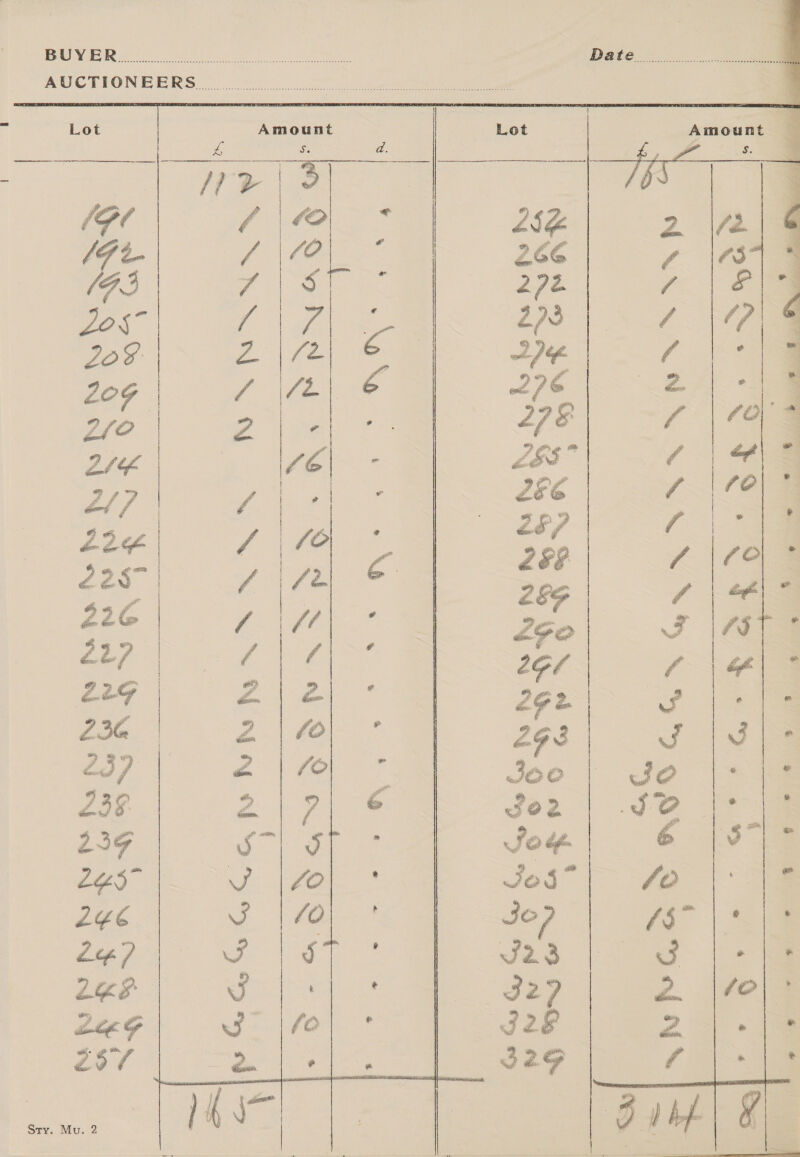 BUYER Date
AUCTIONEERS
Lot Amount Lot Amount
£ s. d. £ s.
112 3
191 1 10 -
192 1 10 -
193 1 5 -
205 1 7 -
208 2 12 6
209 1 12 6
210 2 - -
214 16 -
217 1 - -
224 1 10 -
225 1 12 6
226 1 11 -
227 1 1 -
229 2 2 -
236 2 10 -
237 2 10 -
238 2 7 6
239 5 5 -
245 3 10 -
246 3 10 -
247 3 5 -
248 3 - -
249 3 10 -
251 2 - -
165
165
252 2 12 6
266 1 15 -
272 1 8 -
273 1 17 6
274 1 - -
276 2 - -
278 1 10 -
285 1 4 -
286 1 10 -
287 1 - -
288 1 10 -
289 1 4 -
290 3 15 -
291 1 4 -
292 3 - -
293 3 3 -
300 30 - -
302 50 - -
304 6 5 -
305 10 - -
307 15 - -
323 3 - -
327 2 10 -
328 2 - -
329 1 - -
314 8
Sty. Mu. 2